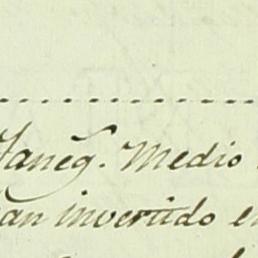 faneg. Medio
an invertido e